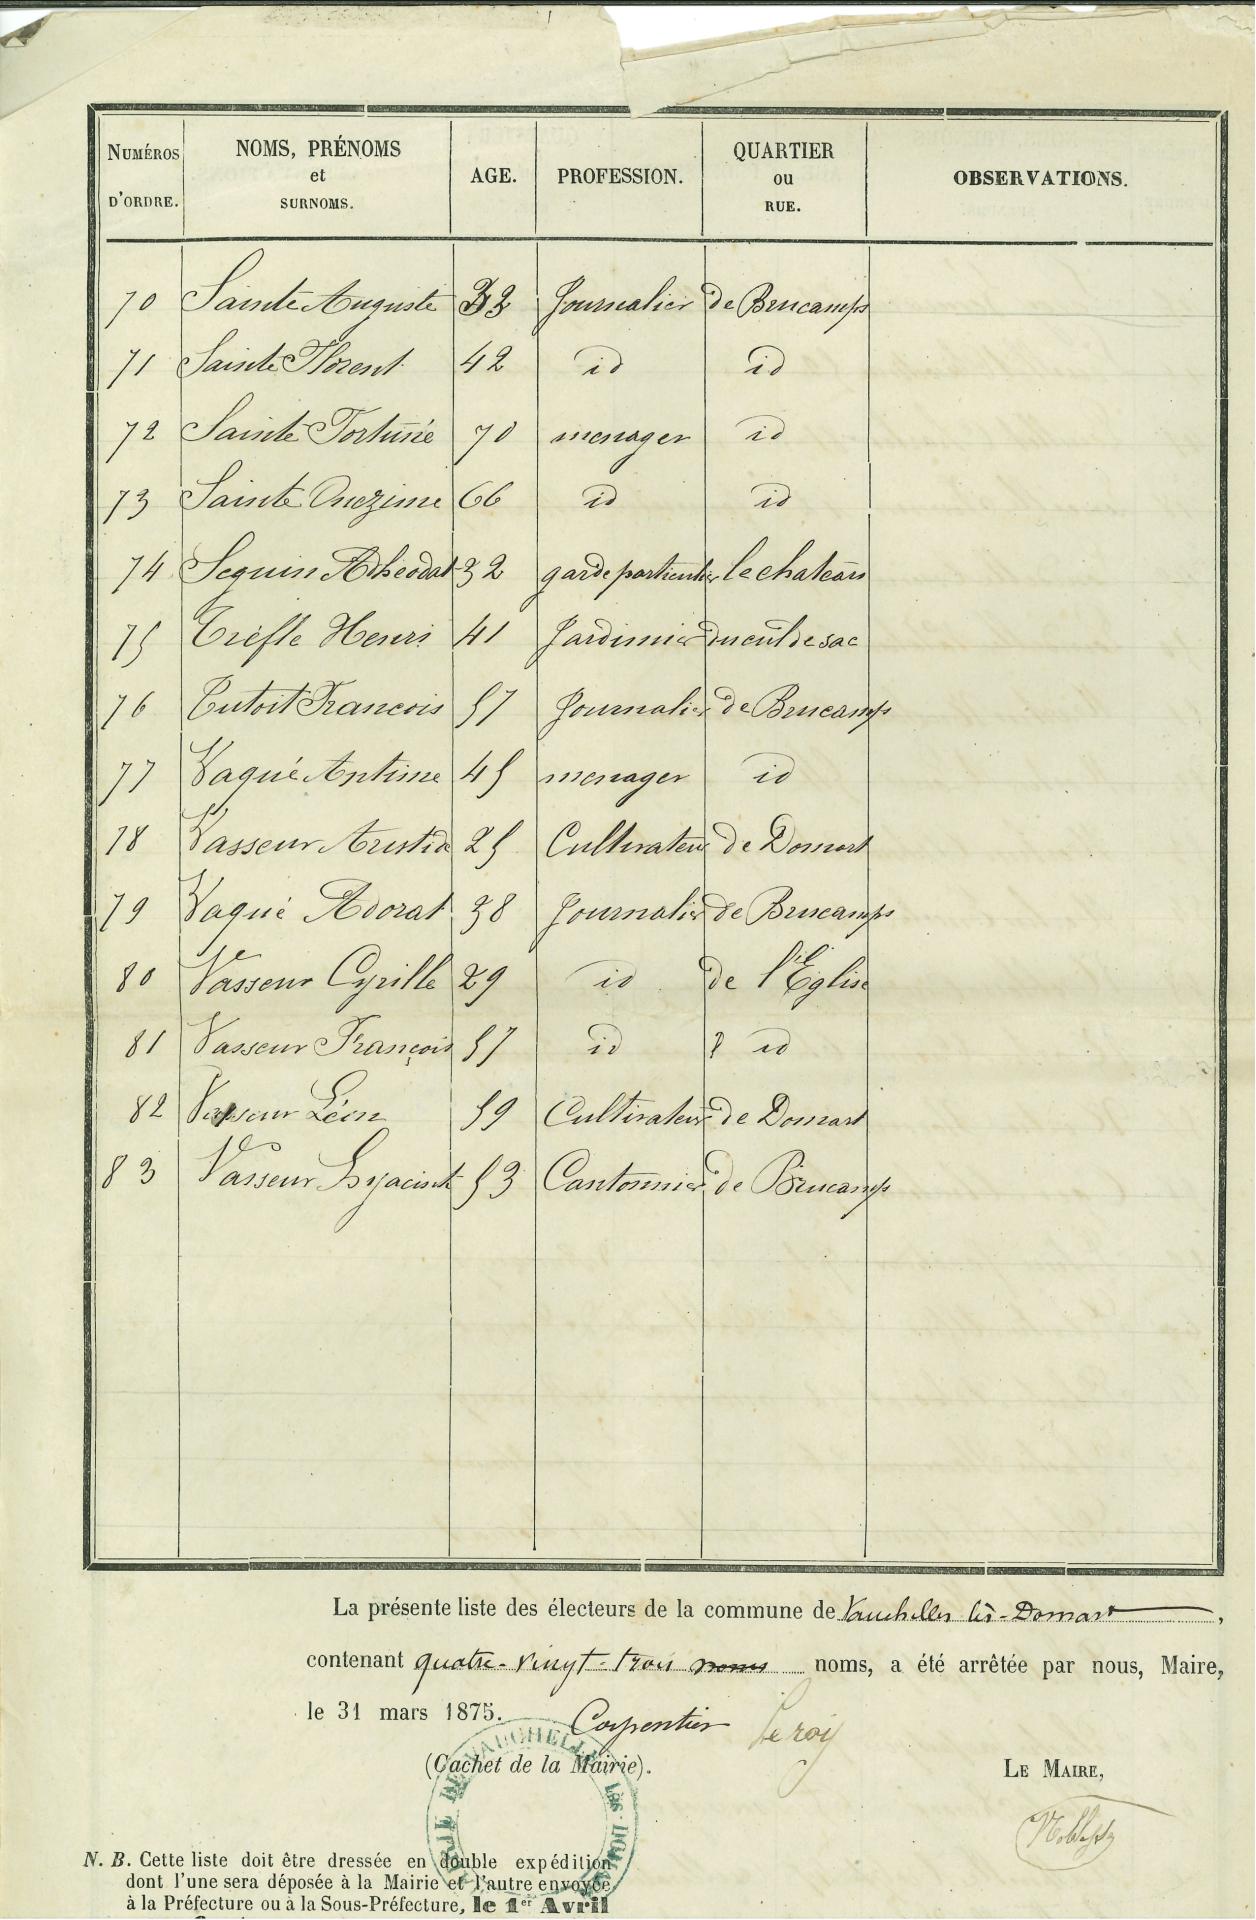 NUMÉROS D'ORDRE. NOMS, PRÉNOMS et SURNOMS. AGE. PROFESSION. QUARTIER ou RUE. OBSERVATIONS.
70 Sainte Auguste 32 Journalier de Brucamps
71 Sainte Florent 42 id id
72 Sainte Fortuné 70 menager id
73 Sainte Onezime 66 id id
74 Seguin Adheodat 32 garde particulier le chateau
75 Trèfle Henri 41 Jardinier du cul de sac
76 Tutoit Francois 57 Journalier de Brucamps
77 Vaqué Antime 45 menager id
78 Vasseur Aristide 25 Cultivateur de Domart
79 Vaqué Adorat 38 Journalier de Brucamps
80 Vasseur Cyrille 29 id de l'Église
81 Vasseur François 57 id id
82 Vasseur Léon 59 Cultivateur de Domart
83 Vasseur Hyacinte 53 Cantonnier de Brucamps
La présente liste des électeurs de la commune de Vauchelles les-Domart,
contenant quatre-vingt-trois noms noms, a été arrêtée par nous, Maire,
le 31 mars 1875. Carpentier Leroy
(Cachet de la Mairie).
LE MAIRE,
MAIRIE DE VAUCHELLES LES-DOMART
N. B. Cette liste doit être dressée en double expédition
dont l'une sera déposée à la Mairie et l'autre envoyée
à la Préfecture ou à la Sous-Préfecture, le 1er Avril